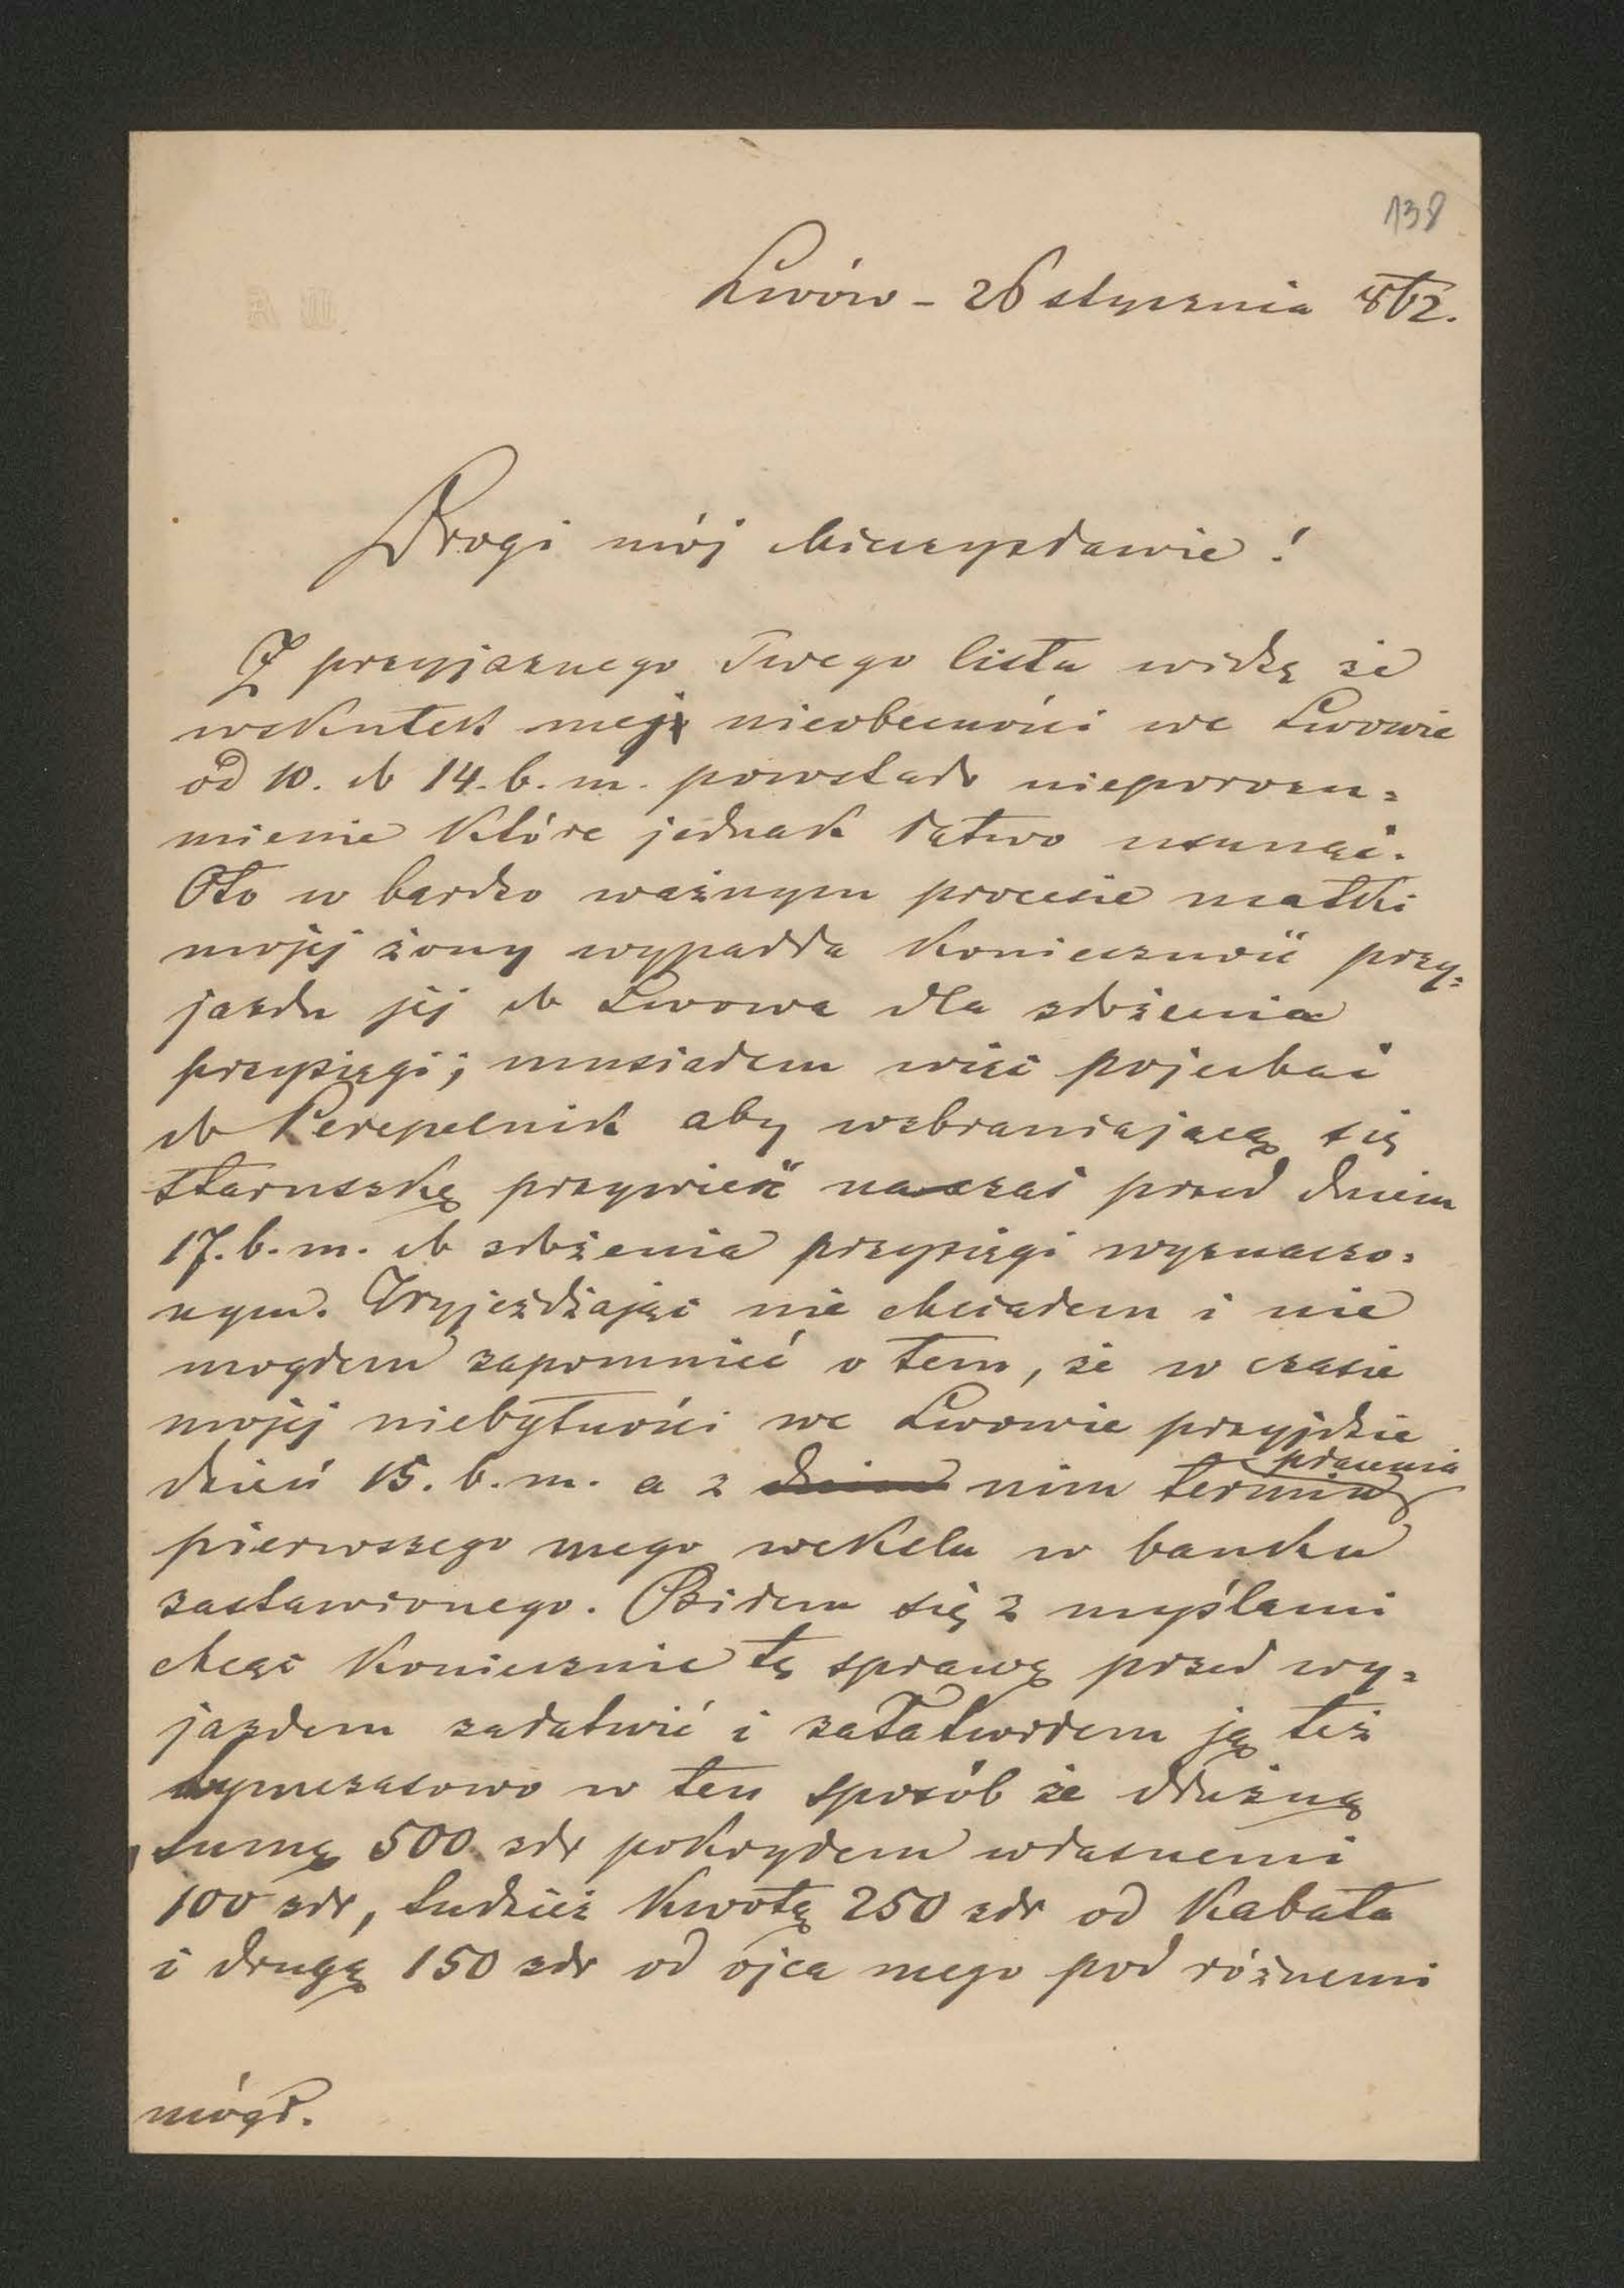 138
Lwów – 26 stycznia 862.
Drogi mój Mieczysławie!
Z przyjaznego Twego listu widzę że
wskutek mej nieobecności we Lwowie
od 10. do 14. b. m. powstało nieporozu=
mienie które jednak łatwo usunąć.
Oto w bardzo ważnym procesie matki
mojej żony wypadła konieczność przy=
jazdu jej do Lwowa dla złożenia
przysięgi; musiałem więc pojechać
do Perepelnik aby wzbraniającą się
staruszkę przywieść na czas przed dniem
17. b. m. do złożenia przysięgi wyznaczo=
nym. Wyjeżdżając nie chciałem i nie
mogłem zapomnieć o tem, że w czasie
mojej niebytności we Lwowie przyjdzie
dzień 15. b. m. a z nim termin płacenia
pierwszego mego wekslu w banku
zastawionego. Biłem się z myślami
chcąc koniecznie tę sprawę przed wy=
jazdem załatwić i załatwiłem ją też
tymczasowo w ten sposób że dłużną
sumę 500 złr pokryłem własnemi
100 złr, tudzież kwotą 250 złr od Kabata
i drugą 150 złr od ojca mego pod różnemi
mógł.